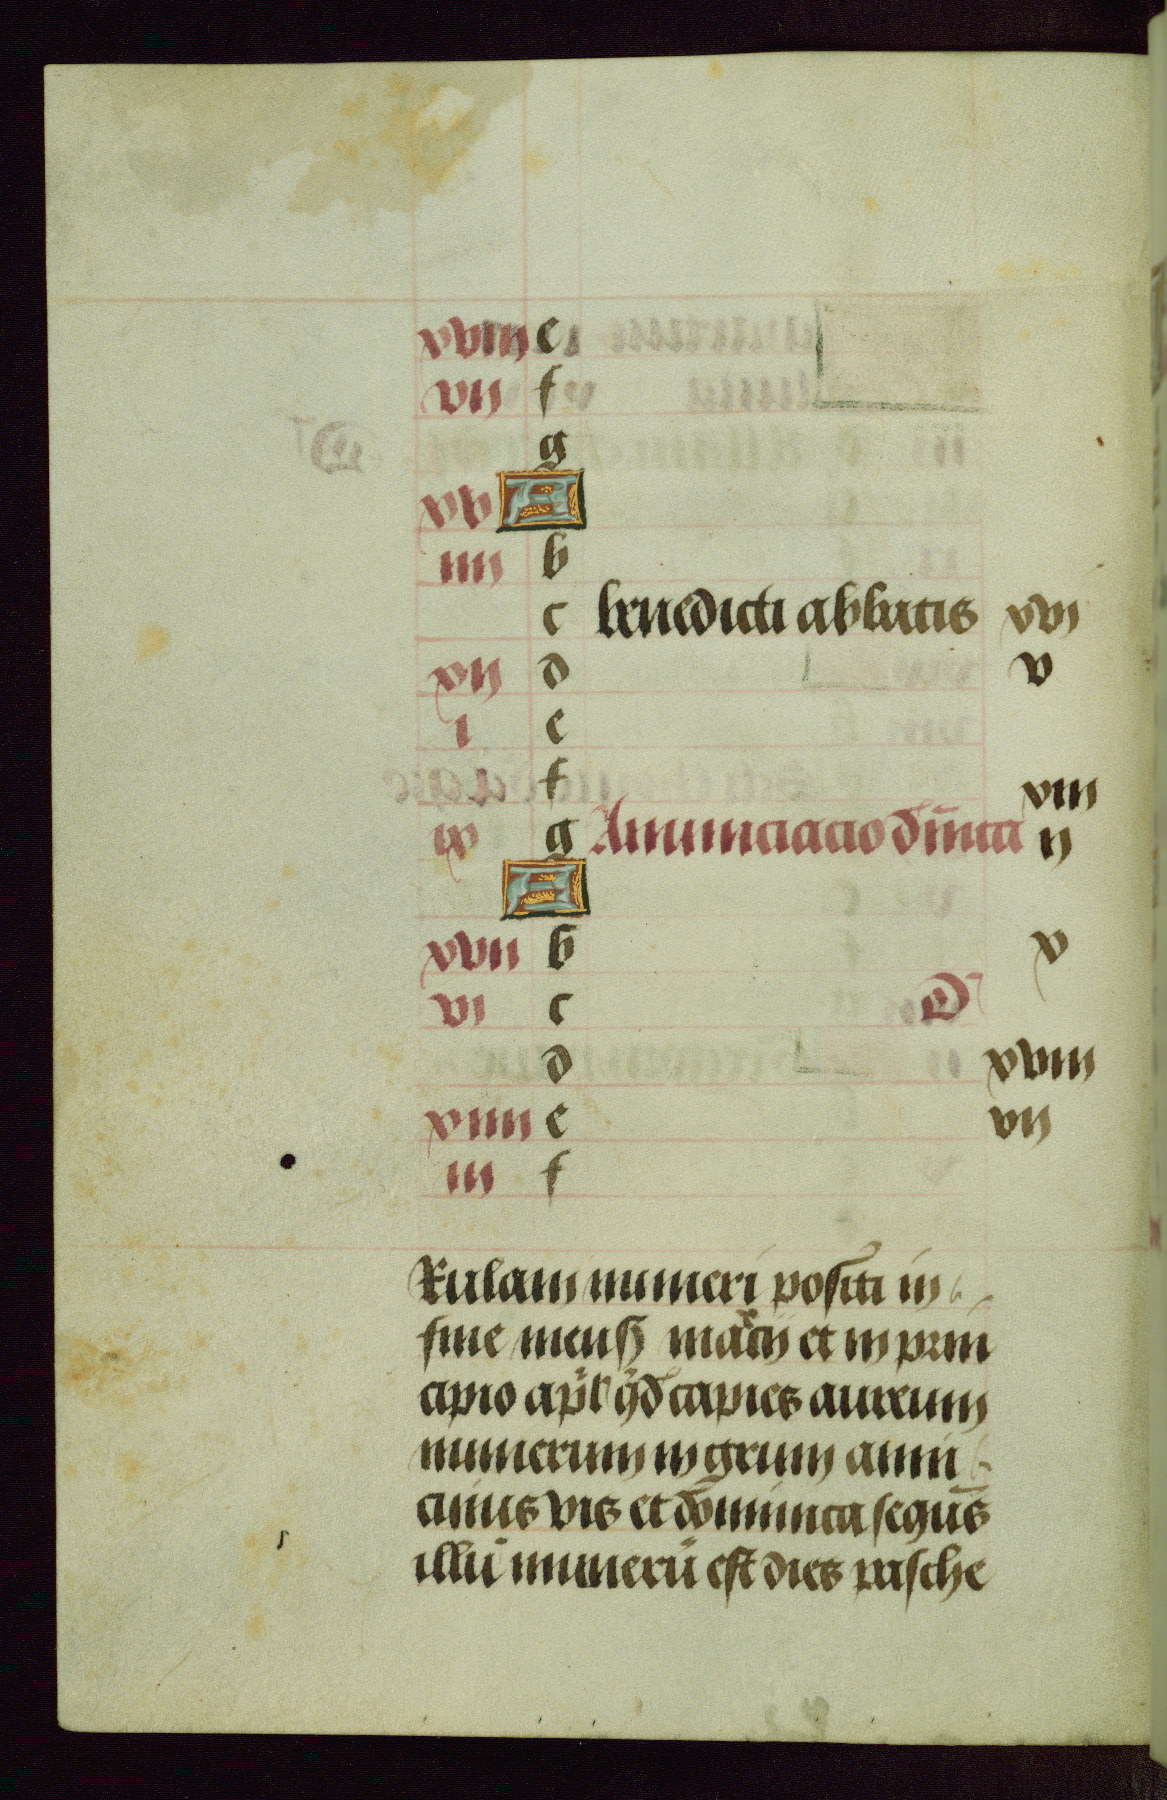 xviij e
vij f
g
xv A
iiij b
c benedicti abbatis xvj
xij d v
i e
f xiii
ix g Anunciacio dn̄ica ij
A
xvii b x
vi c
d xviii
xiiii e vij
iii f
Rulam numeri positi in
fine mens̄ marcij et in prin
cipio apl̄ capies aureum
numerum nigrum anni
cuius vis et dominica sequēs
illū numerū est dies pasche